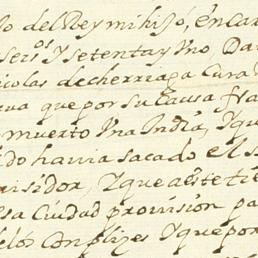 lo del Rey mi hijo, en car
seis.os Y setenta y Vno Da
icolas de cherria, a Cura
rua que por su Causa fra
muerto Vna India, Y qu
do hauia sacado el s
uisidor, Y que a este tie
sa Ciudad prouision pa
los Complizes Y que por